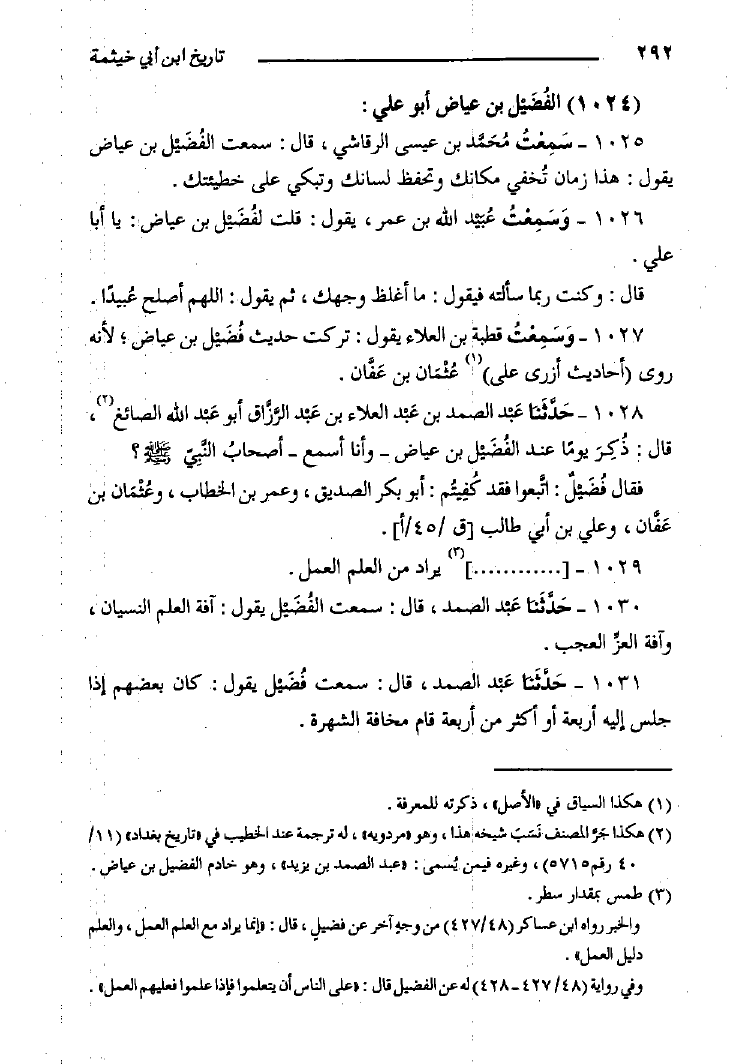 ٢٩٢ تاريخ ابن أبي خيثمة
(١٠٢٤) الفُضَيْل بن عياض أبو علي :
١٠٢٥ - سَمِعْتُ مُحَمَّد بن عيسى الرقاشي ، قال : سمعت الفُضَيْل بن عياض
يقول : هذا زمان تُخفي مكانك وتحفظ لسانك وتبكي على خطيئتك .
١٠٢٦ - وَسَمِعْتُ عُبَيْد الله بن عمر ، يقول : قلت لفُضَيْل بن عياض : يا أبا
علي .
قال : وكنت ربما سألته فيقول : ما أغلظ وجهك ، ثم يقول : اللهم أصلح عُبيدًا .
١٠٢٧ - وَسَمِعْتُ قطبة بن العلاء يقول : تركت حديث فُضَيْل بن عياض ؛ لأنه
روى (أحاديث أزرى على)(١) عُثْمَان بن عَفَّان .
١٠٢٨ - حَدَّثَنَا عَبْد الصمد بن عَبْد العلاء بن عَبْد الرَّزَّاق أبو عَبْد الله الصائغ(٢) ،
قال : ذُكِرَ يومًا عند الفُضَيْل بن عياض - وأنا أسمع - أصحابُ النَّبِيّ ﷺ ؟
فقال فُضَيْلٌ : اتَّبعوا فقد كُفِيتُم : أبو بكر الصديق ، وعمر بن الخطاب ، وعُثْمَان بن
عَفَّان ، وعلي بن أبي طالب [ق /٤٥/أ] .
١٠٢٩ - [............](٣) يراد من العلم العمل .
١٠٣٠ - حَدَّثَنَا عَبْد الصمد ، قال : سمعت الفُضَيْل يقول : آفة العلم النسيان ،
وآفة العزِّ العجب .
١٠٣١ - حَدَّثَنَا عَبْد الصمد ، قال : سمعت فُضَيْل يقول : كان بعضهم إذا
جلس إليه أربعة أو أكثر من أربعة قام مخافة الشهرة .
(١) هكذا السياق في «الأصل» ، ذكرته للمعرفة .
(٢) هكذا جَرَّ المصنف نَسَبَ شيخه هذا ، وهو «مردويه» ، له ترجمة عند الخطيب في «تاريخ بغداد» (١١/
٤٠ رقم٥٧١٥) ، وغيره فيمن يُسمى : «عبد الصمد بن يزيد» ، وهو خادم الفضيل بن عياض .
(٣) طمس بمقدار سطر .
والخبر رواه ابن عساكر (٤٢٧/٤٨) من وجهٍ آخر عن فضيلٍ ، قال : «إنما يراد مع العلم العمل ، والعلم
دليل العمل» .
وفي رواية (٤٨/ ٤٢٧-٤٢٨) له عن الفضيل قال : «على الناس أن يتعلموا فإذا علموا فعليهم العمل» .